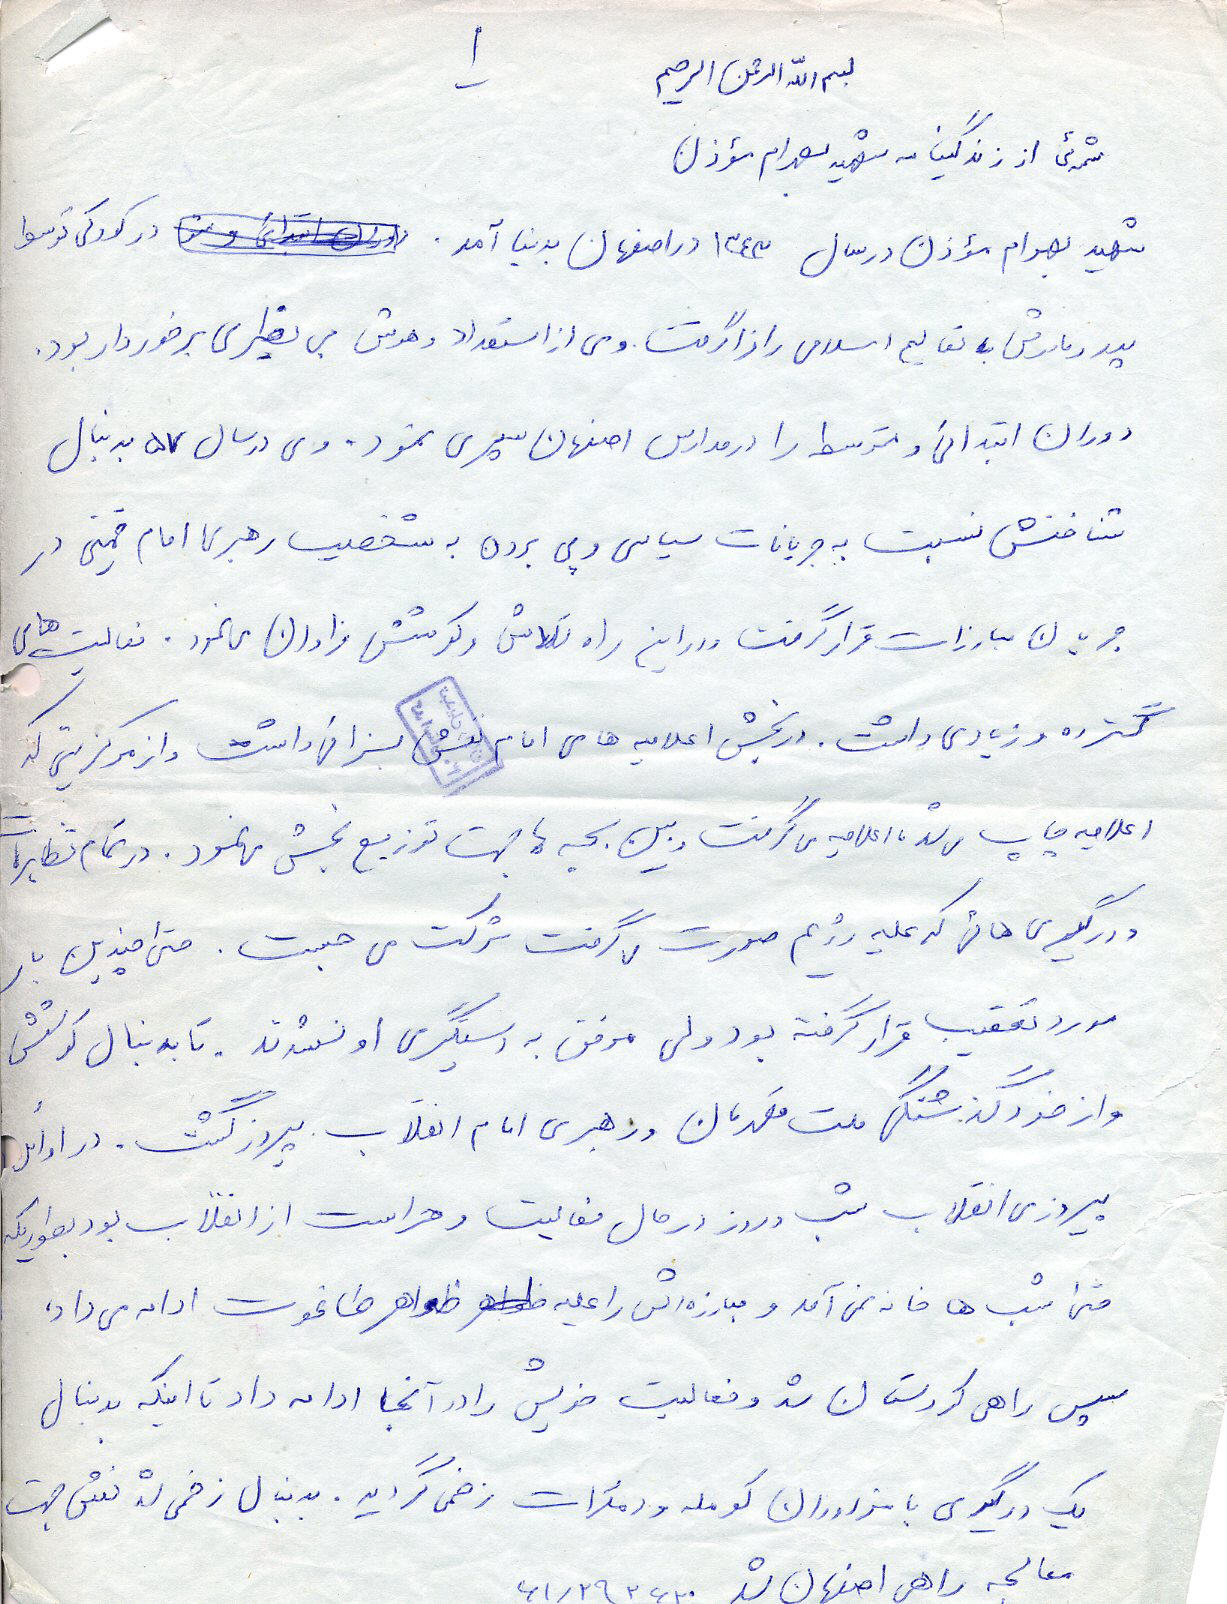 ۱
بسم الله الرحمن الرحیم
شمه‌ئی از زندگینامه شهید بهرام مؤذن
شهید بهرام مؤذن در سال ۱۳۴۳ در اصفهان بدنیا آمد . دوران ابتدائی و متو در کودکی توسط
پدر و مادرش با تعالیم اسلامی را فرا گرفت . وی از استعداد و هوش بی نظیری برخوردار بود .
دوران ابتدائی و متوسط را در مدارس اصفهان سپری نمود . وی در سال ۵۷ بدنبال
شناختش نسبت به جریانات سیاسی و پی بردن به شخصیت رهبری امام خمینی در
جریان مبارزات قرار گرفت و در این راه تلاش و کوشش فراوان می نمود . فعالیت های
گسترده و زیادی داشت . در پخش اعلامیه های امام نقش بسزائی داشت و از مرکزیتی که
اعلامیه چاپ می شد ، اعلامیه می گرفت و بین بچه ها جهت توزیع پخش می نمود . در تمام تظاهرات
و درگیری هائی که علیه رژیم صورت می گرفت شرکت می جست . حتی چندین بار
مورد تعقیب قرار گرفته بود ولی موفق به دستگیری او نشدند . تا بدنبال کوشش
و از خود گذشتگی ملت قهرمان و رهبری امام انقلاب پیروز گشت . در اوائل
پیروزی انقلاب شب و روز در حال فعالیت و حراست از انقلاب بود بطوریکه
حتی شب ها خانه نمی آمد و مبارزه اش را علیه ظواهر ظواهر طاغوت ادامه می داد ،
سپس راهی کردستان شد و فعالیت خویش را در آنجا ادامه داد تا اینکه بدنبال
یک درگیری با مزدوران کومله و دمکرات زخمی گردید . بدنبال زخمی شدنش جهت
معالجه راهی اصفهان شد